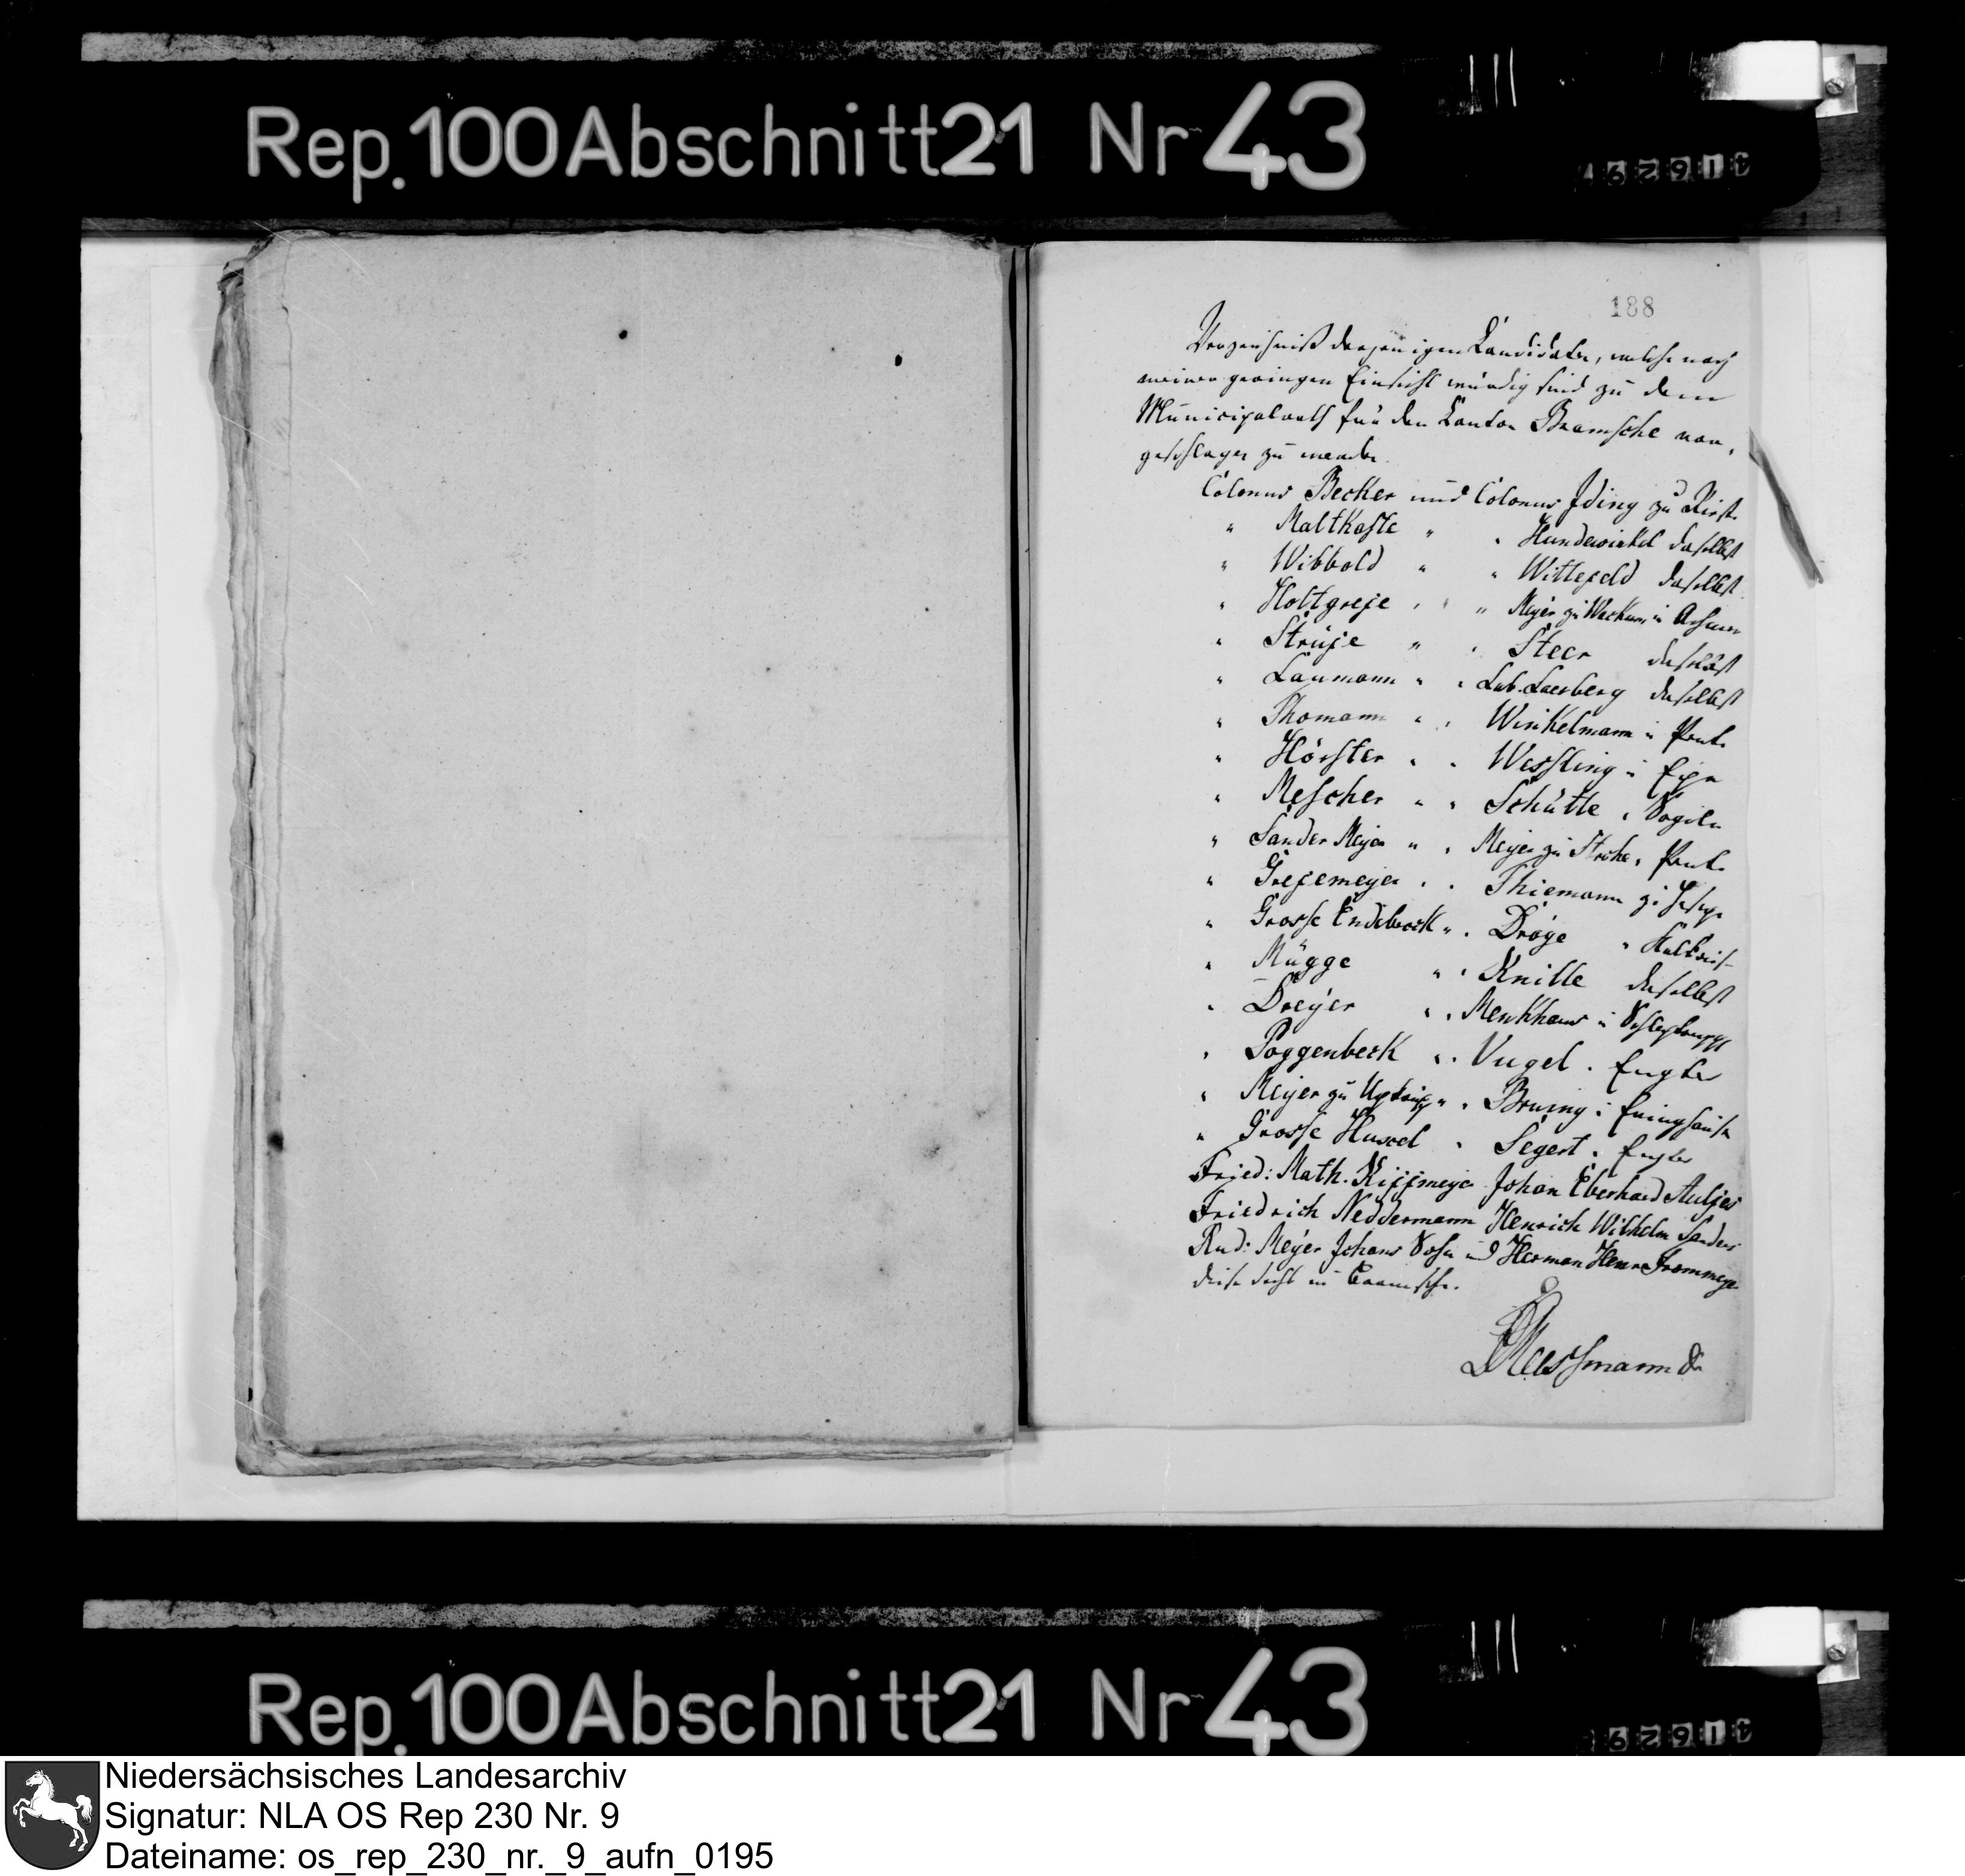 Rep. 100 Abschnitt 21 Nr 43
188
Verzeichniß derjenigen Candidaten, welche nach
meiner geringen Einsicht würdig sind zu dem
Municipalrath für den Canton Bramsche vor,
geschlagen zu werden.
Colonus Becker und Colonus Iding zu Rieste
" Maltkaste " " Hundewinkel daselbst
" Wibbold " " Wittefeld daselbst
" Holtgrefe " " Meyer zu Wackum in Achmer
" Strüfe " " Steer daselbst
" Laumann " " Lub. Laerberg daselbst
" Thomann " " Winkelmann in Pente
" Hörster " " Wessling in Epe
" Mescher " " Schütte " Sögeln
" Sander Meyer " " Meyer zu Starhe " Pente
" Grefemeyer " " Thiemann zu Hesepe
" Grosse Endebrock " " Dröge " Kalkriese
" Mügge " " Knille daselbst
" Dreyer " " Menkhaus in Schleptrupp
" Poggenbeck " " Vugel " Engter
" Meyer zu Uptrup " " Bruning in Evinghausen
" Grosse Hused " Segert " Engter
Fried: Math. Kiffmeyer Johan Eberhard
Friedrich Neddermann Henrich Wilhelm Sanders
Rud: Meyer Johann und Herman Henr Frommeyer
diese sechs in Bramsche.
Rep. 100 Abschnitt 21 Nr 43
Niedersächsisches Landesarchiv
Signatur: NLA OS Rep 230 Nr. 9
Dateiname: os_rep_230_nr._9_aufn_0195